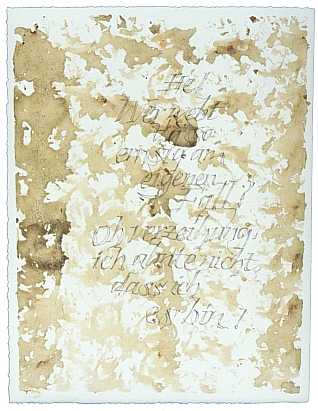 He!
Wer klebt
da so
ernst am
eigenen
Fall?
oh verzeihung,
ich ahnte nicht,
dass ich
es bin!